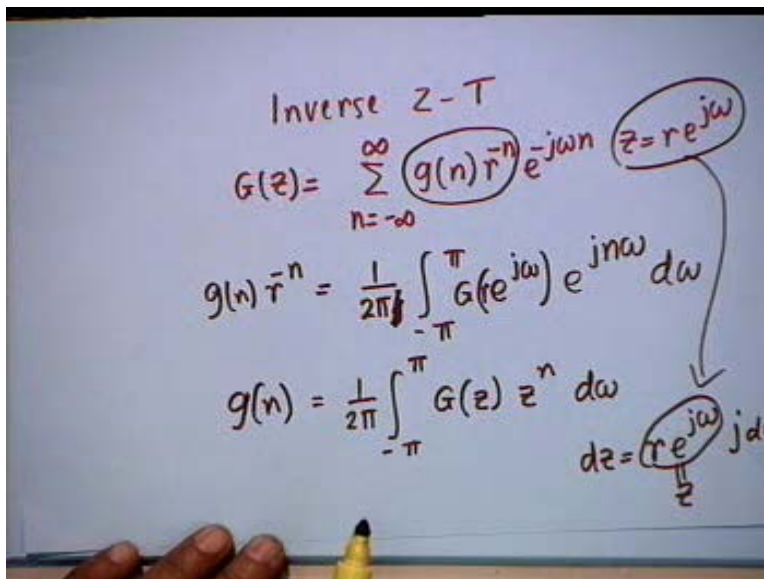 Inverse Z-T
G(z) = ∑_{n=-∞}^{∞} g(n) r^{-n} e^{-jωn} z = re^{jω}
g(n) r^{-n} = 1/2π ∫_{-π}^{π} G(re^{jω}) e^{jnω} dω
g(n) = 1/2π ∫_{-π}^{π} G(z) z^n dω
dz = re^{jω} jd
=
z